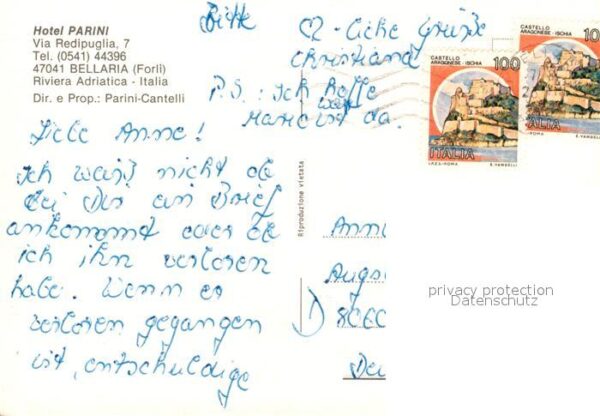 Hotel PARINI
Via Redipuglia, 7
Tel. (0541) 44396
47041 BELLARIA (Forlì)
Riviera Adriatica - Italia
Dir. e Prop.: Parini-Cantelli
Liebe Anne!
Ich weiß nicht ob
bei Dir ein Brief
ankommt oder ob
ich ihn verloren
habe. Wenn er
verloren gegangen
ist, entschuldige
Bitte
Grüße
Christiana
P.S.: Ich hoffe
ist da.
Riproduzione vietata
CASTELLO
ARAGONESE - ISCHIA
100
ITALIA
I.P.Z.S.-ROMA
E. VANGELLI
CASTELLO
ARAGONESE - ISCHIA
10
ITALIA
-ROMA
E. VANGELLI
Ann
Augs
privacy protection
Datenschutz